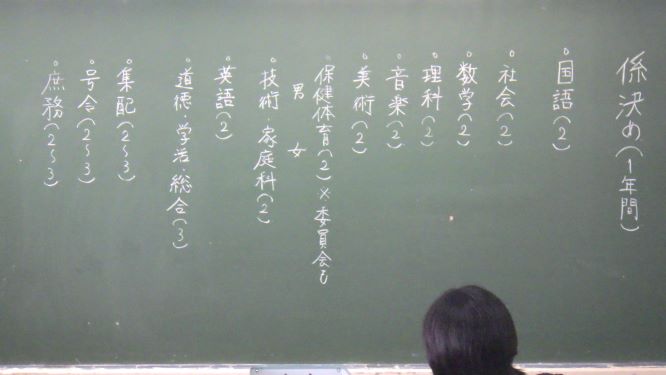 係決め(1年間)
。国語(2)
。社会(2)
。数学(2)
。理科(2)
。音楽(2)
。美術(2)
。保健体育(2)×委員会も
男 女
。技術・家庭科(2)
。英語(2)
。道徳・学活・総合(3)
。集配(2~3)
。号令(2~3)
。庶務(2~3)